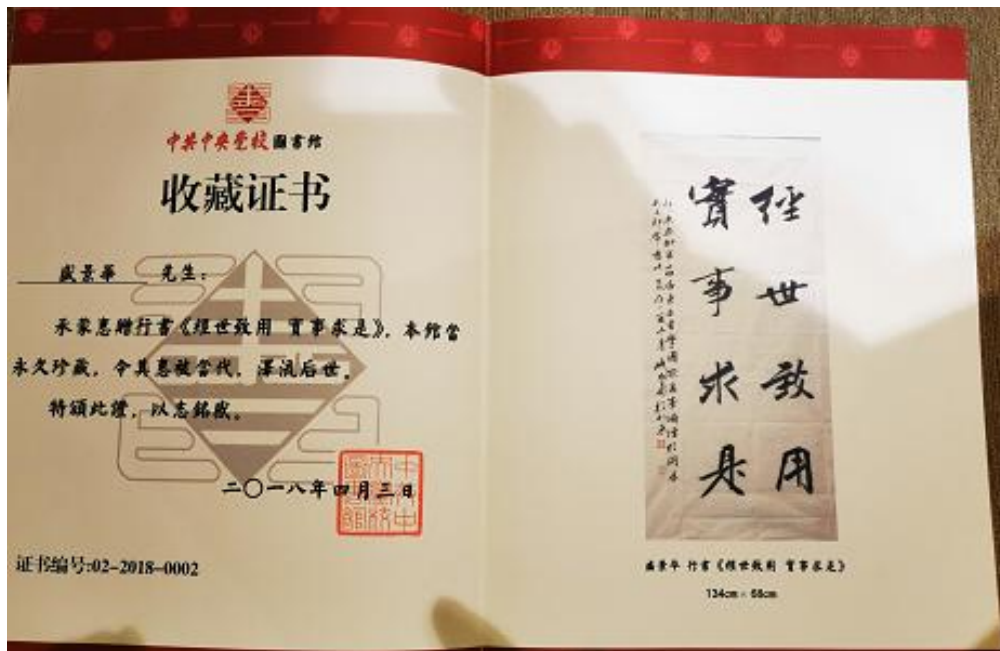 中共中央党校圖書館
收藏证书
盛景華 先生：
承蒙惠赠行書《經世致用 實事求是》，本館當
永久珍藏，令其惠被當代，澤流后世。
特頒此證，以志銘感。
二〇一八年四月三日
证书编号:02-2018-0002
經世致用
實事求是
盛景华 行書《經世致用 實事求是》
134cm × 66cm